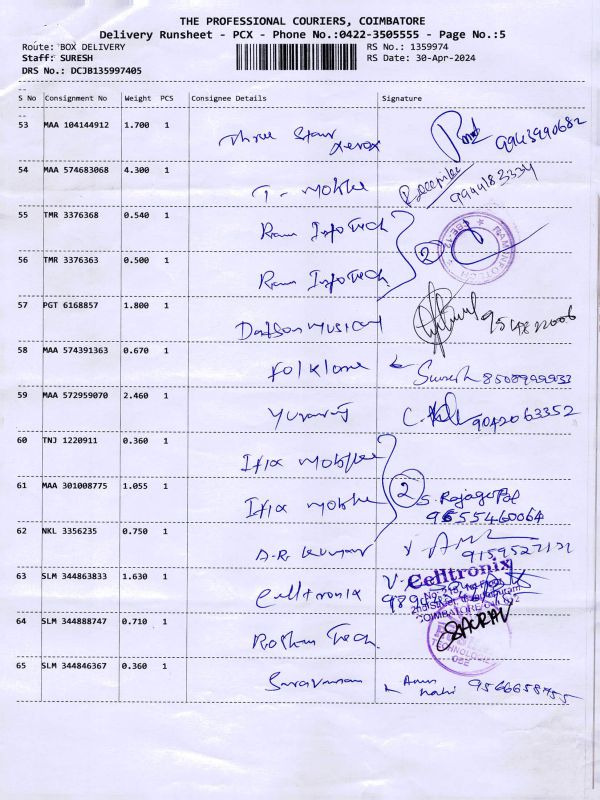 THE PROFESSIONAL COURIERS, COIMBATORE
Delivery Runsheet - PCX - Phone No.:0422-3505555 - Page No.:5
Route: BOX DELIVERY RS No.: 1359974
Staff: SURESH RS Date: 30-Apr-2024
DRS No.: DCJB135997405
S No Consignment No Weight PCS Consignee Details Signature
53 MAA 104144912 1.700 1 Three Star Xerox 9943990682
54 MAA 574683068 4.300 1 T- Mobile
55 TMR 3376368 0.540 1 Ram InfoTech
56 TMR 3376363 0.500 1 Ram InfoTech 2
57 PGT 6168857 1.800 1 Musical
58 MAA 574391363 0.670 1 Folklore Suresh 8508999933
59 MAA 572959070 2.460 1 Yuvaraj 9042063352
60 TNJ 1220911 0.360 1 Mobile
61 MAA 301008775 1.055 1 Mobile 2 S. Rajagopal
9655460064
62 NKL 3356235 0.750 1 A.R. Kumar
63 SLM 344863833 1.630 1 Celltronix Celltronix
64 SLM 344888747 0.710 1 Roshan Tech
65 SLM 344846367 0.360 1 Saravanan Arun
9566658755